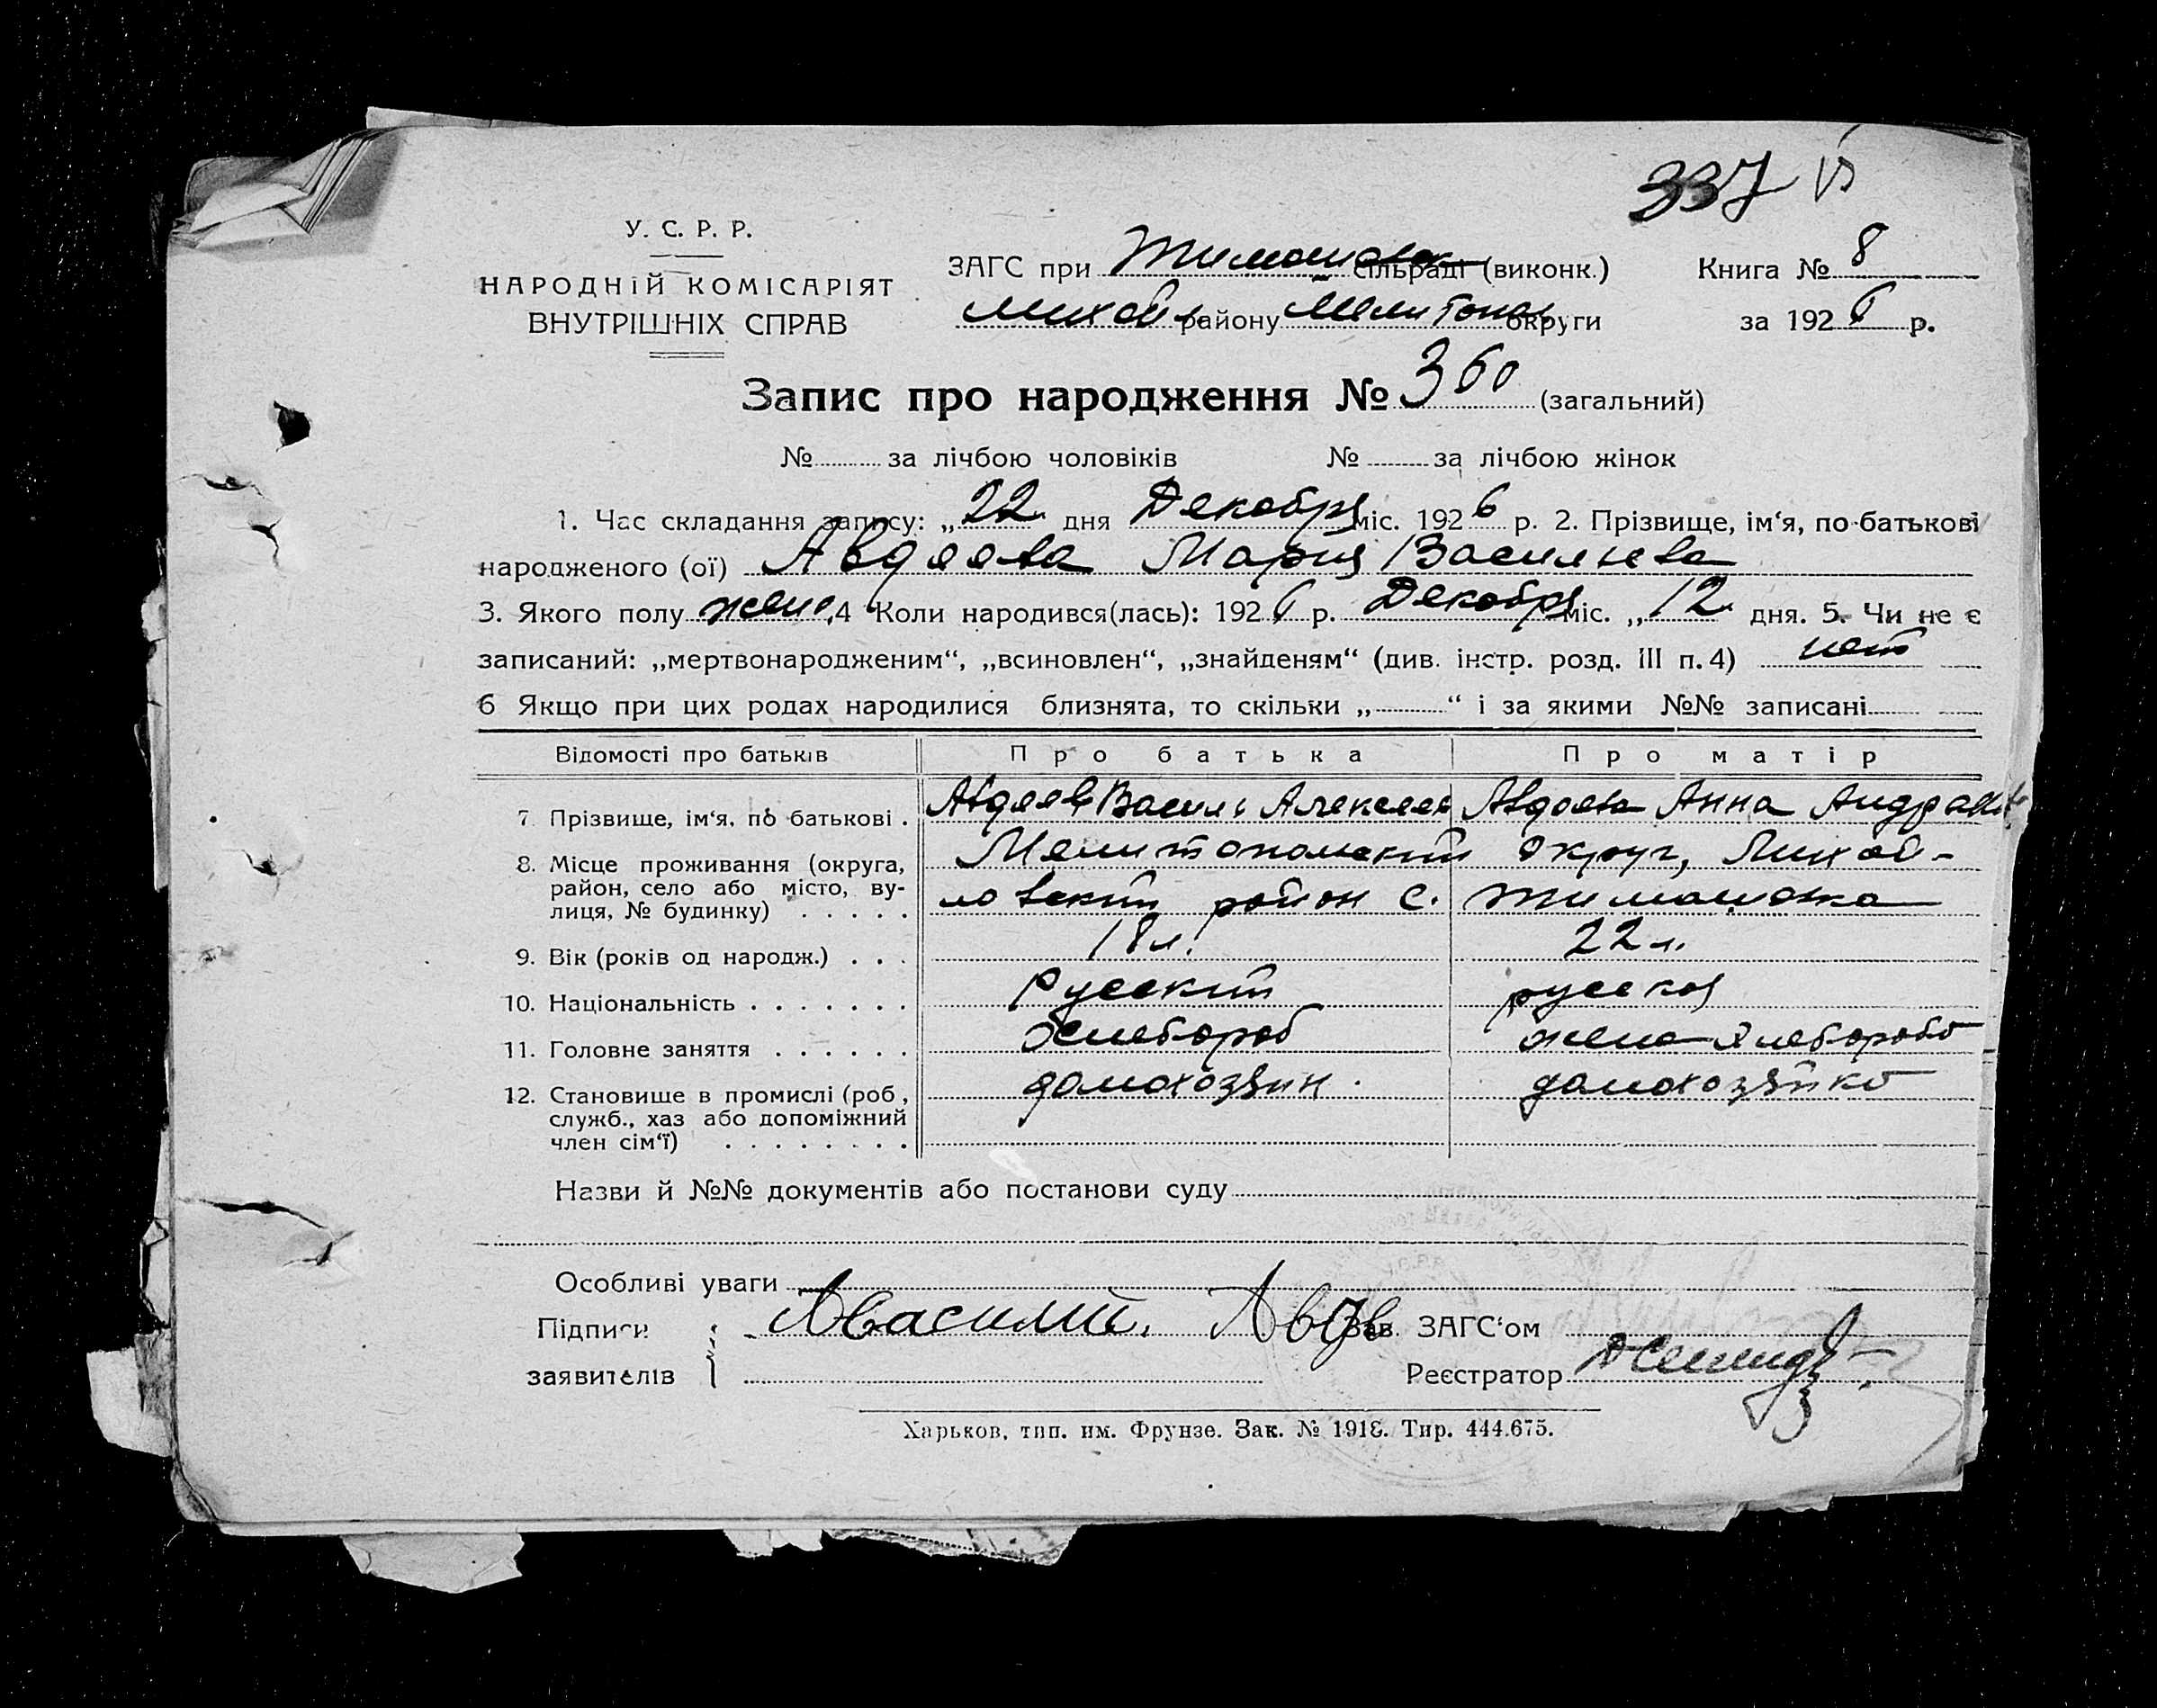 337
У. С. Р. Р.
НАРОДНІЙ КОМІСАРІЯТ
ВНУТРІШНІХ СПРАВ
ЗАГС при Тимошовк сільраді (виконк.)
Михайл району Мелитопол округи
Книга № 8
за 1926 р.
Запис про народження № 360 (загальний)
№ за лічбою чоловіків № за лічбою жінок
1. Час складання запису: „22 дня Декабря міс. 1926 р. 2. Прізвище, ім‘я, по-батькові
народженого (ої) Авдеева Мария Васильева
3. Якого полу жен. 4 Коли народився(лась): 1926 р. Декабря міс. „12 дня. 5. Чи не є
записаний: „мертвонародженим“, „всиновлен“, „знайденям“ (див. інстр. розд. III п. 4) нет
6 Якщо при цих родах народилися близнята, то скільки „ “ і за якими №№ записані
Відомості про батьків Про батька Про матір
7. Прізвище, ім‘я, по батькові . Авдеев Василь Алексеев Авдеева Анна Андреев
8. Місце проживання (округа, район, село або місто, ву-лиця, № будинку) . . . . . Мелитопольский Округ, Михай-
ловский район с. Тимошовка
9. Вік (років од народж.) . . . 18 л. 22 л.
10. Національність . . . . . . . Русский русская
11. Головне заняття . . . . . . Хлебороб жена хлебороба
12. Становище в промислі (роб, служб., хаз або допоміжний член сім‘ї) . . . . . . . . домохозяин. домохозяйка
Назви й №№ документів або постанови суду
Особливі уваги
Підписи Авасилий. Авдв Зав. ЗАГС‘ом
заявителів Реєстратор
Харьков, тип. им. Фрунзе. Зак. № 1918. Тир. 444.675.